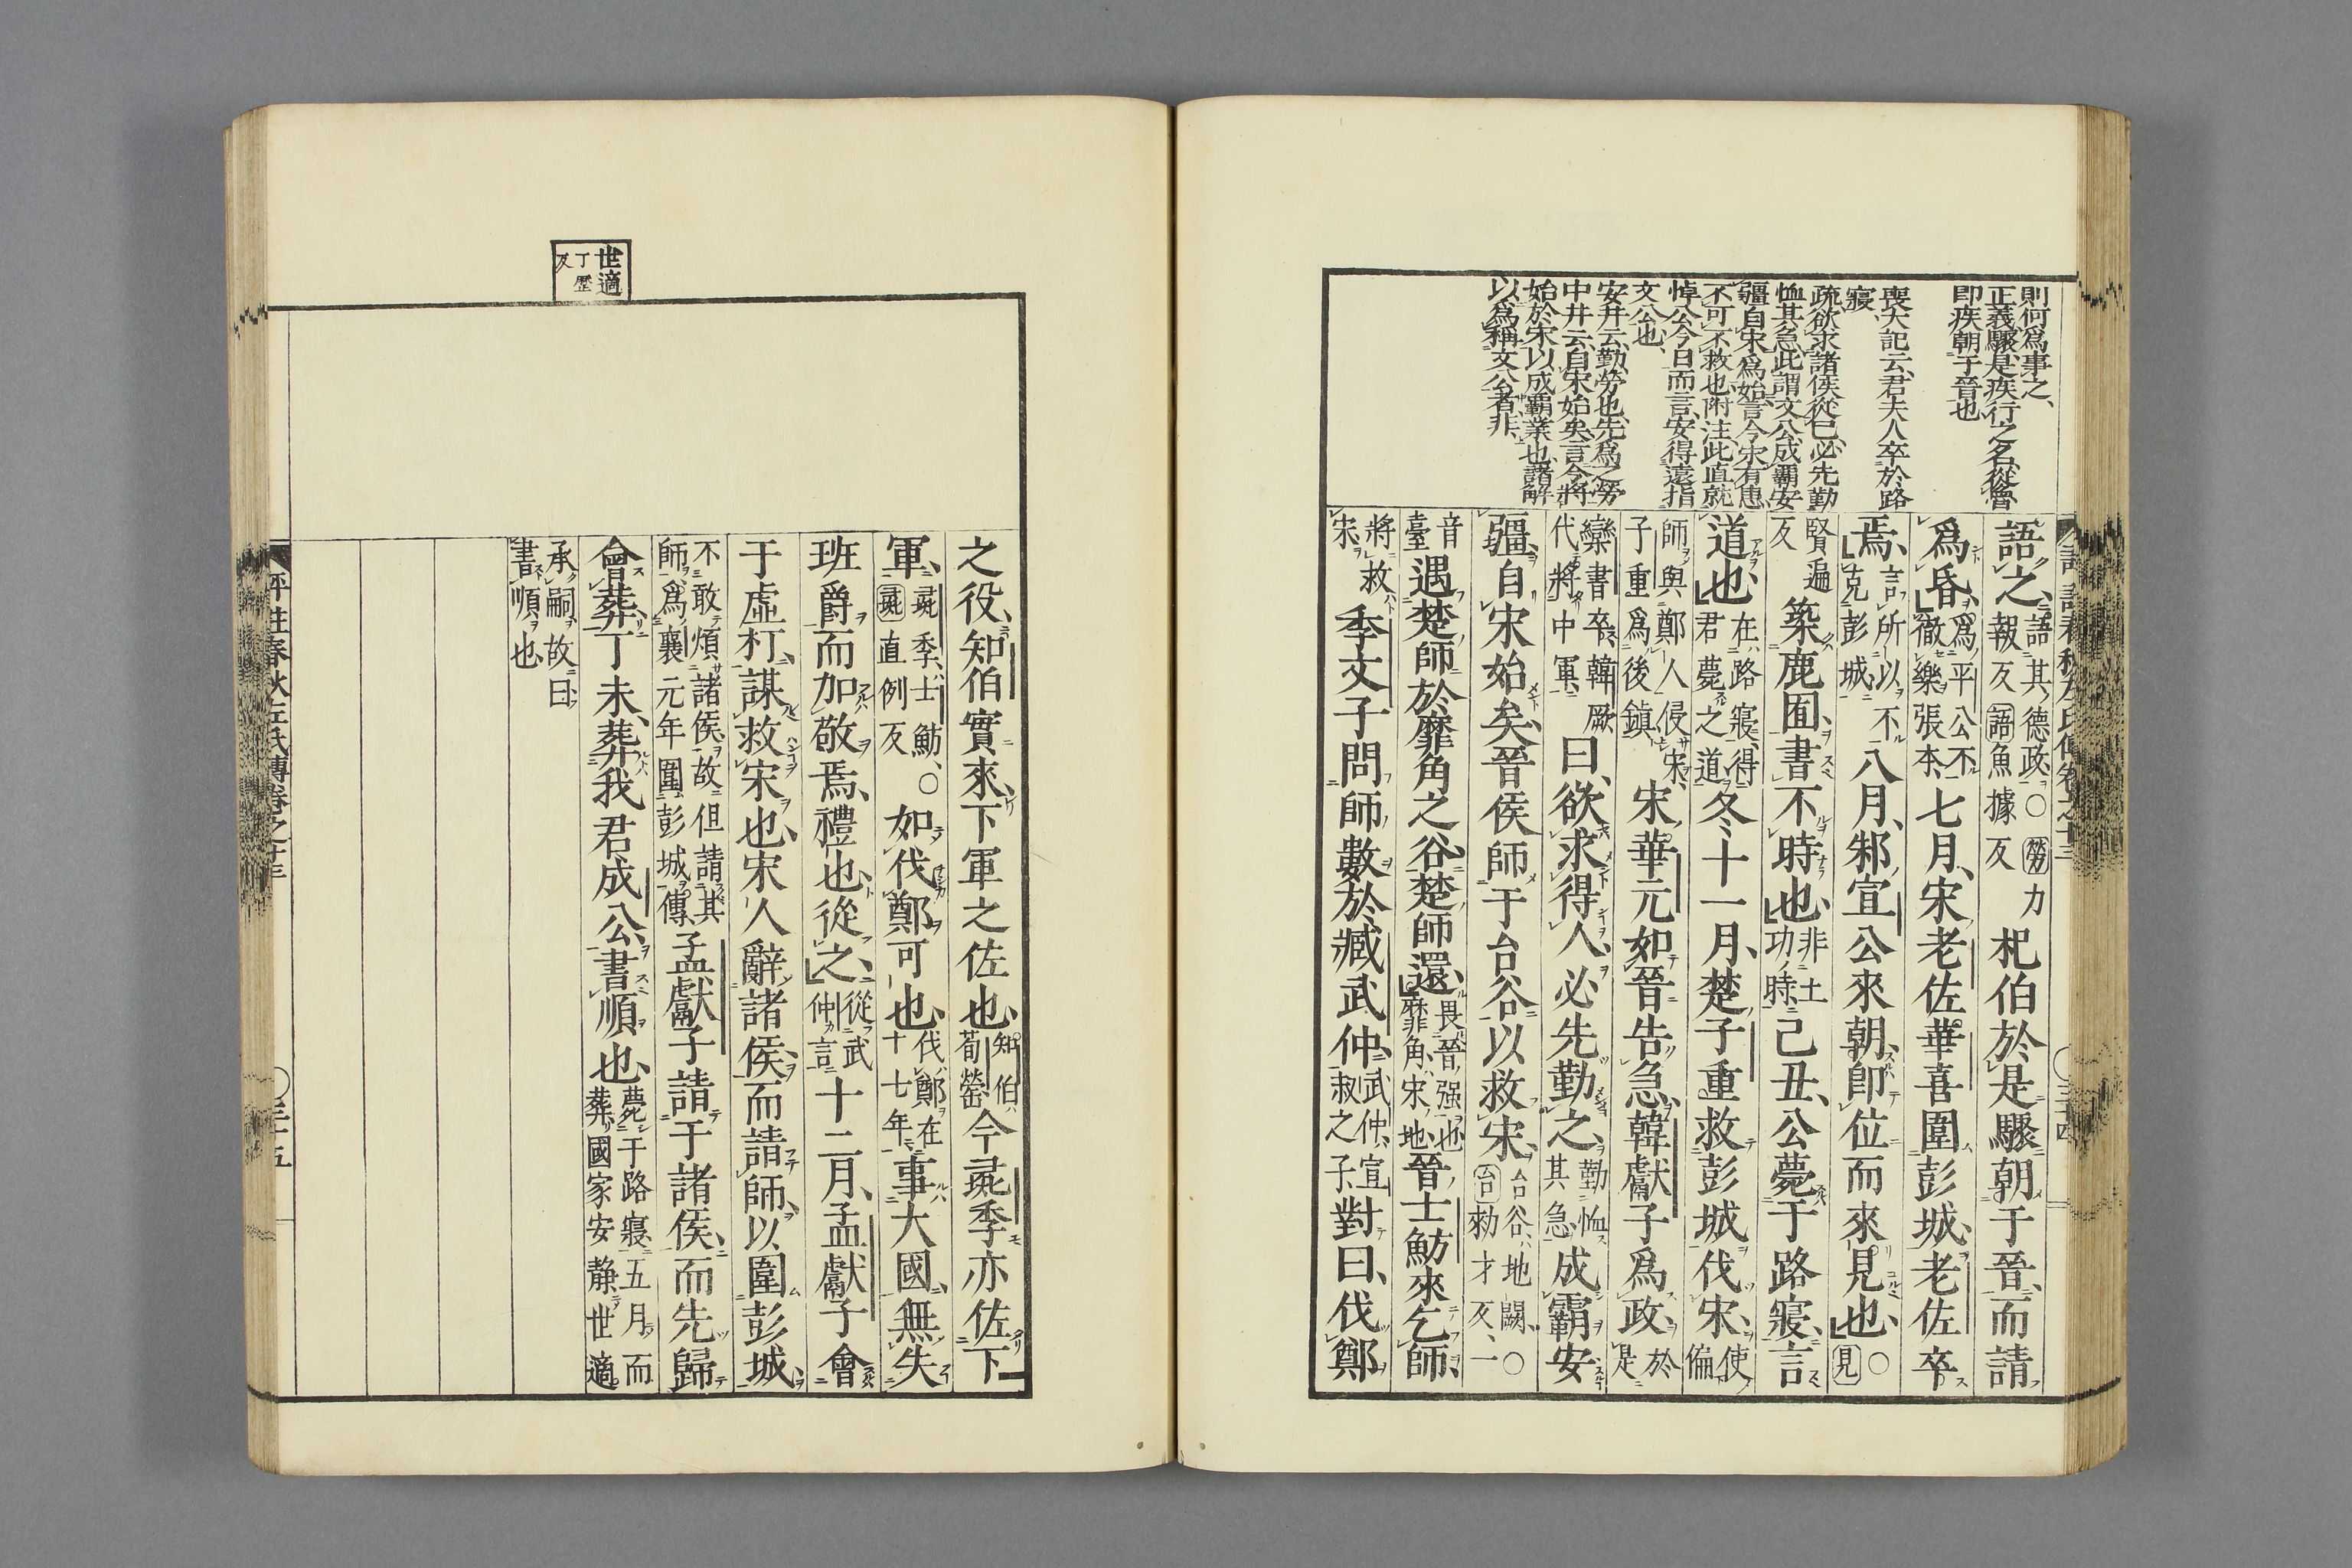 則何爲事之、
正義驟是疾行之名、從會
即疾朝于晉也
喪大記云、君夫人卒於路
寢、
疏、欲求諸侯從已、必先勤
恤其急、此謂文公成霸安
疆自宋爲始、言今宋有患、
不可不救也、附注、此直就
悼公今日而言、安得遠指
文公也、
安井云、勤、勞也、先爲之勞、
中井云、自宋始矣、言今將
始於宋以成霸業也、諸解
以爲稱文公者非、
語之、語其德政、○勞力報反語魚據反杞伯於是驟朝于晉、而請
爲昏、爲平公不徹樂張本、七月、宋老佐華喜圍彭城、老佐卒
焉、言所以不克彭城八月、邾宣公來朝、即位而來見也、○見
賢遍反築鹿囿、書不時也、非土功時、己丑、公薨于路寢、言
道也、在路寢、得君薨之道冬、十一月、楚子重救彭城、伐宋、使偏
師與鄭人侵宋、子重爲後鎮宋華元如晉告急、韓獻子爲政、於是
欒書卒、韓厥代將中軍、曰、欲求得人、必先勤之、勤恤其急成霸安
疆、自宋始矣、晉侯師于台谷、以救宋、台谷、地闕、○台勑才反、一
音臺遇楚師於靡角之谷、楚師還、畏晉强也靡角、宋地、晉士魴來乞師、
將救宋季文子問師數於臧武仲、武仲、宣叔之子、對曰、伐鄭
評註春秋左氏傳卷之十三
○三十四
世適
丁歷反
之役、知伯實來、下軍之佐也、知伯荀罃今彘季亦佐下
軍、彘季、士魴、○彘直例反如伐鄭可也、伐鄭在十七年事大國、無失
班爵而加敬焉、禮也、從之、從武仲言十二月、孟獻子會
于虛朾、謀救宋也、宋人辭諸侯、而請師、以圍彭城
不敢煩諸侯、故但請其師、爲襄元年圍彭城傳、孟獻子請于諸侯、而先歸
會葬、丁未、葬我君成公、書順也、薨于路寢、五月而葬、國家安靜、世適
承嗣、故曰書順也
評註春秋左氏傳卷之十三
○三十五